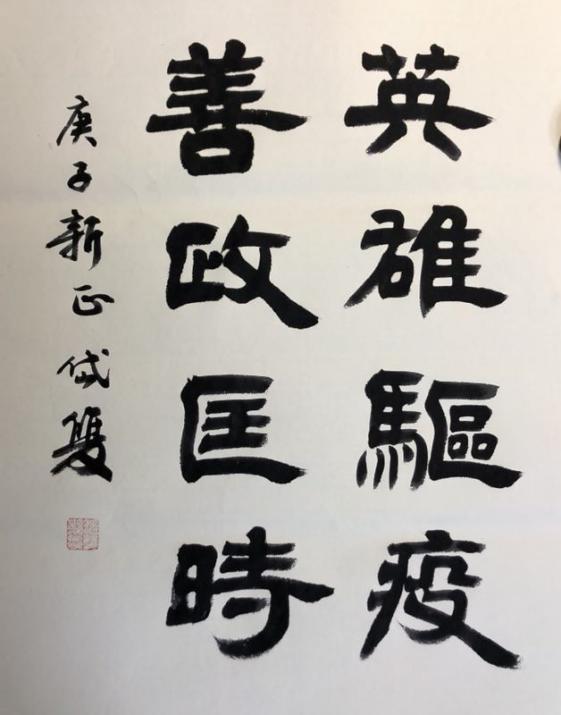 英雄驅疫
善政匡時
庚子新正岱雙